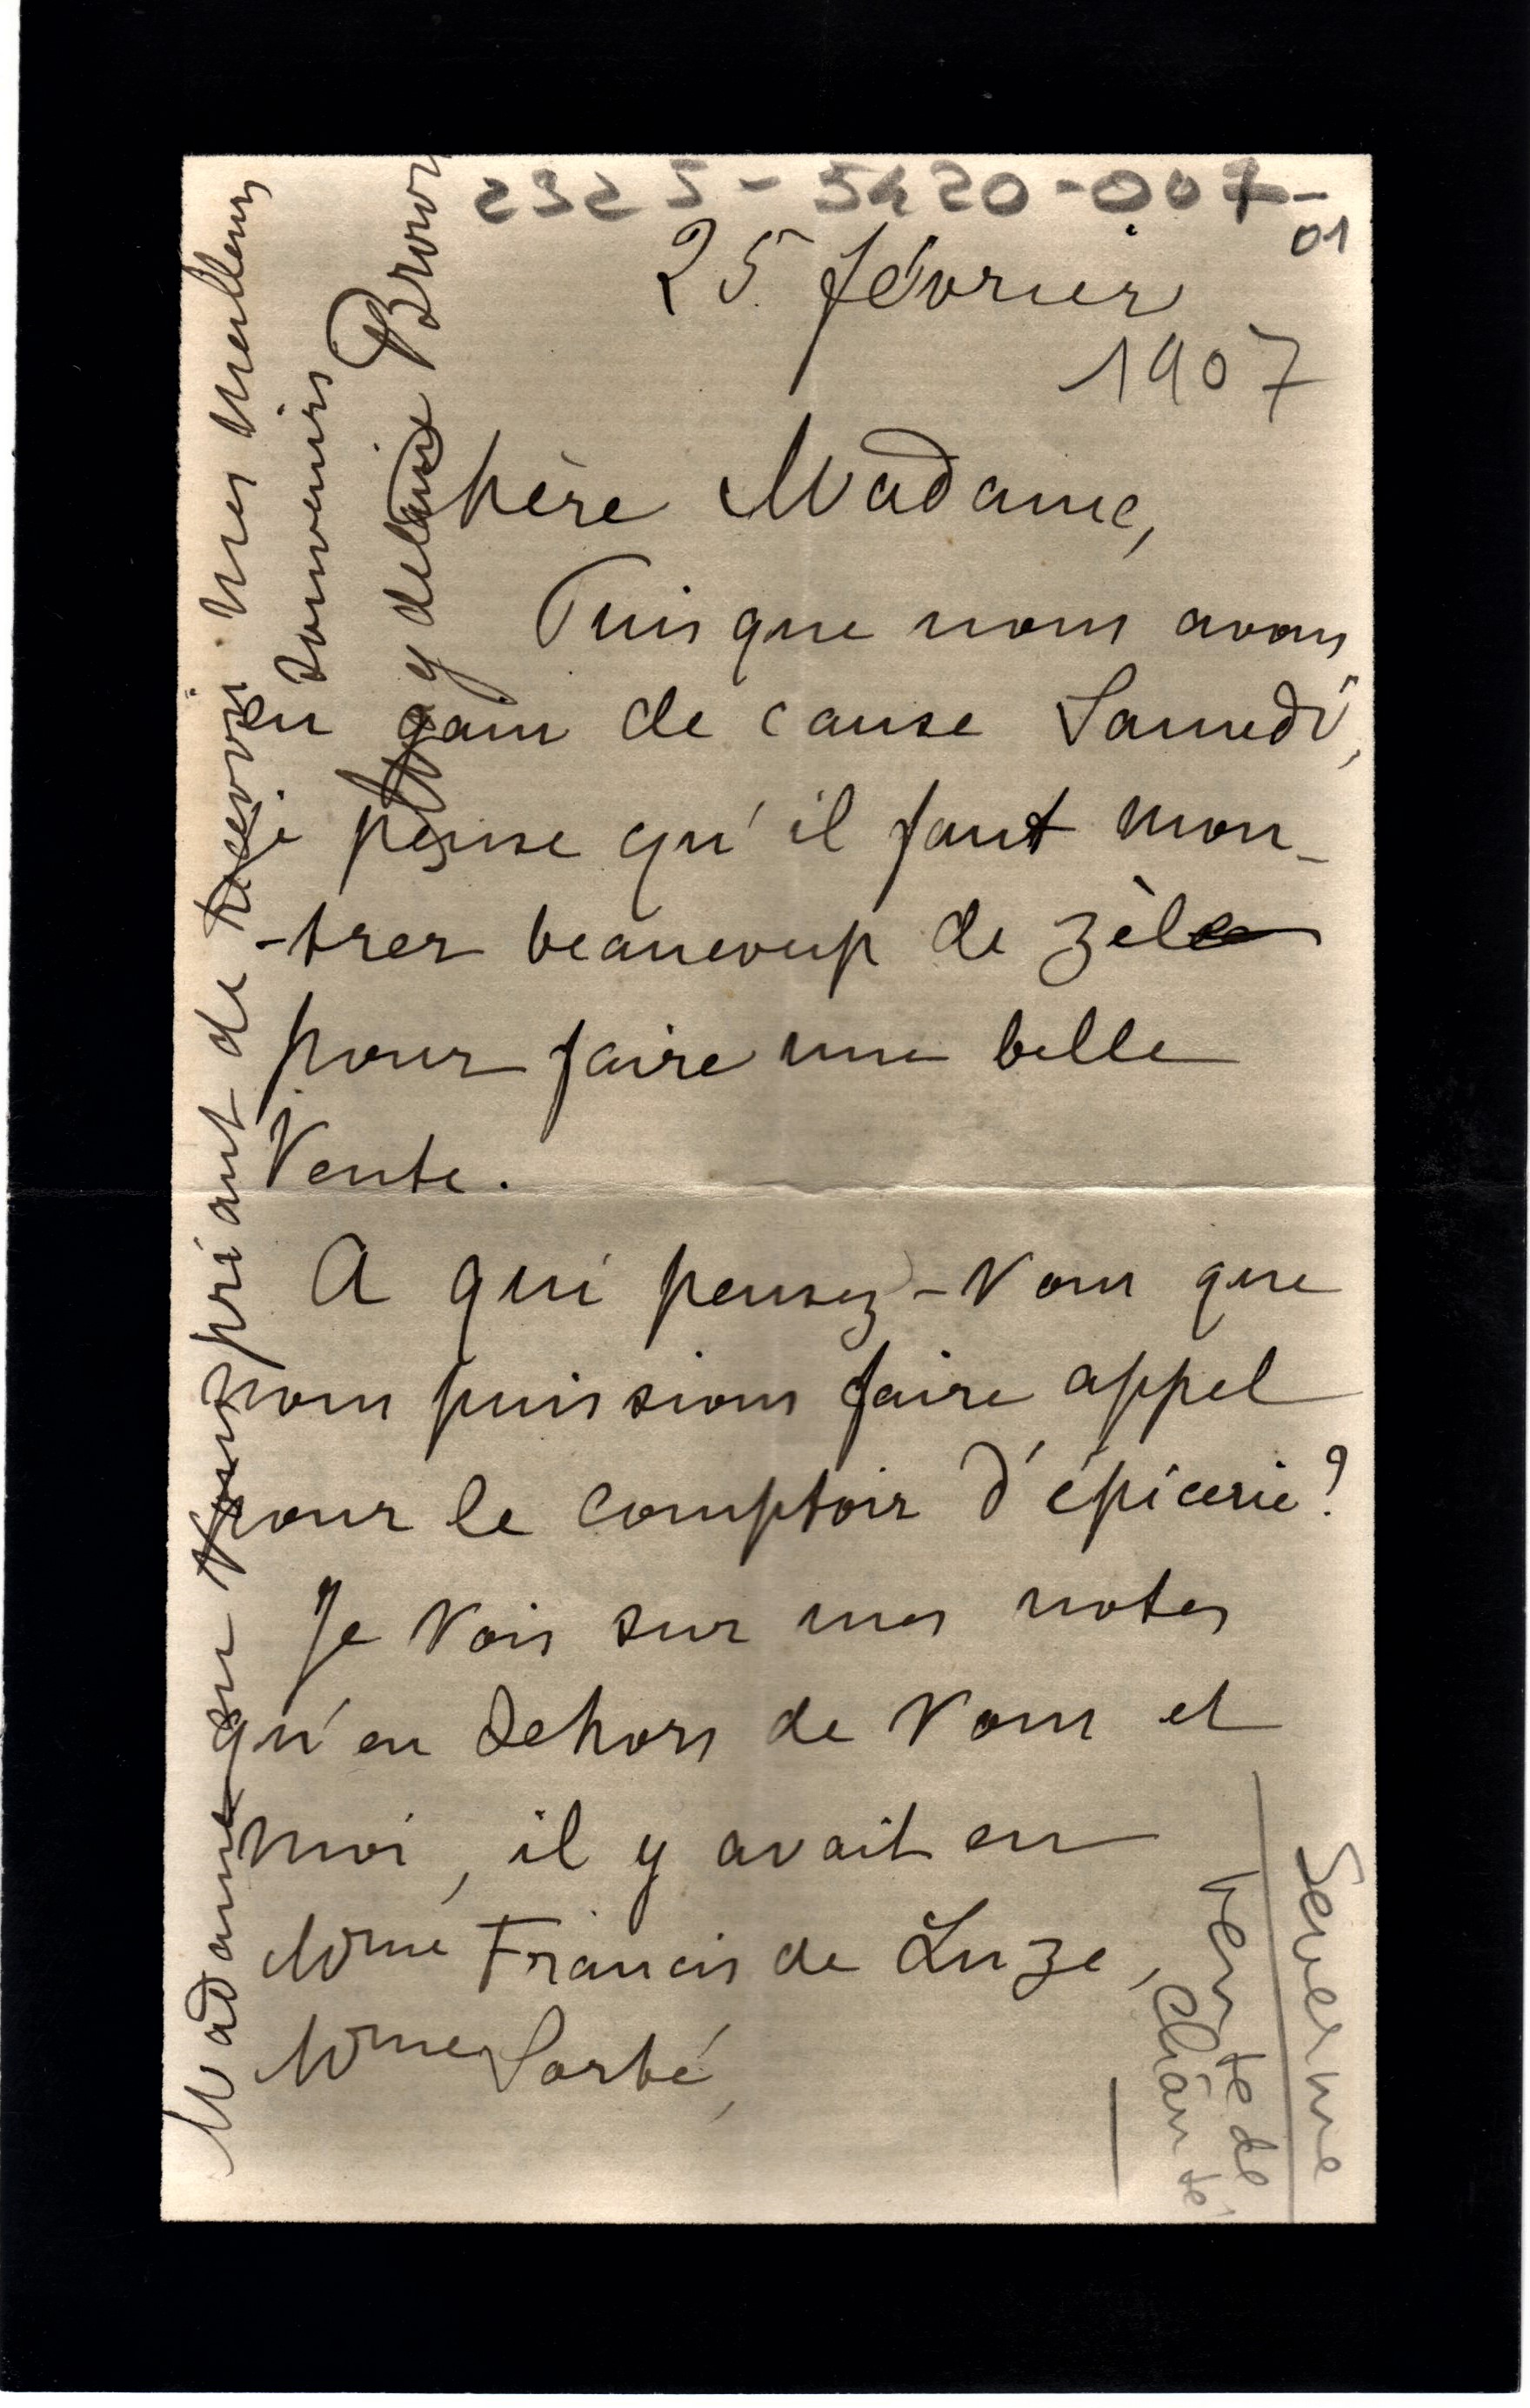 2325-5420-007-
01
25 février
1907
Chère Madame,
Puisque nous avons
eu gain de cause Samedi,
je pense qu'il faut mon-
-trer beaucoup de zèle
pour faire une belle
Vente.
A qui pensez-vous que
nous puissions faire appel
pour le comptoir d'épicerie?
Je vois sur mes notes
qu'en dehors de vous et
moi, il y avait eu
Mme Francis de Luze,
Mme Sorbé,
Madame en vous priant de recevoir mes meilleurs
souvenirs
Brown
Severine
Vente de
charité